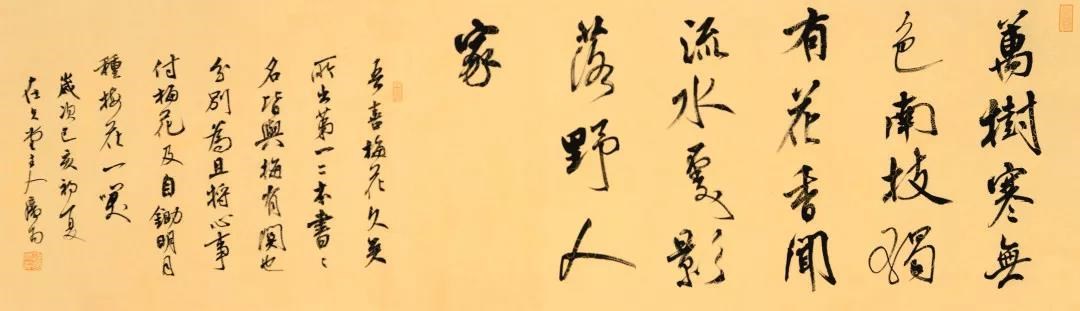 萬樹寒無
色南枝獨
有花香聞
流水處影
落野人
家
吾喜梅花久矣
所出第一二本書々
名皆與梅有關也
分別為且將心事
付梅花及自鋤明月
種梅花一笑
歲次己亥初夏
堂主人